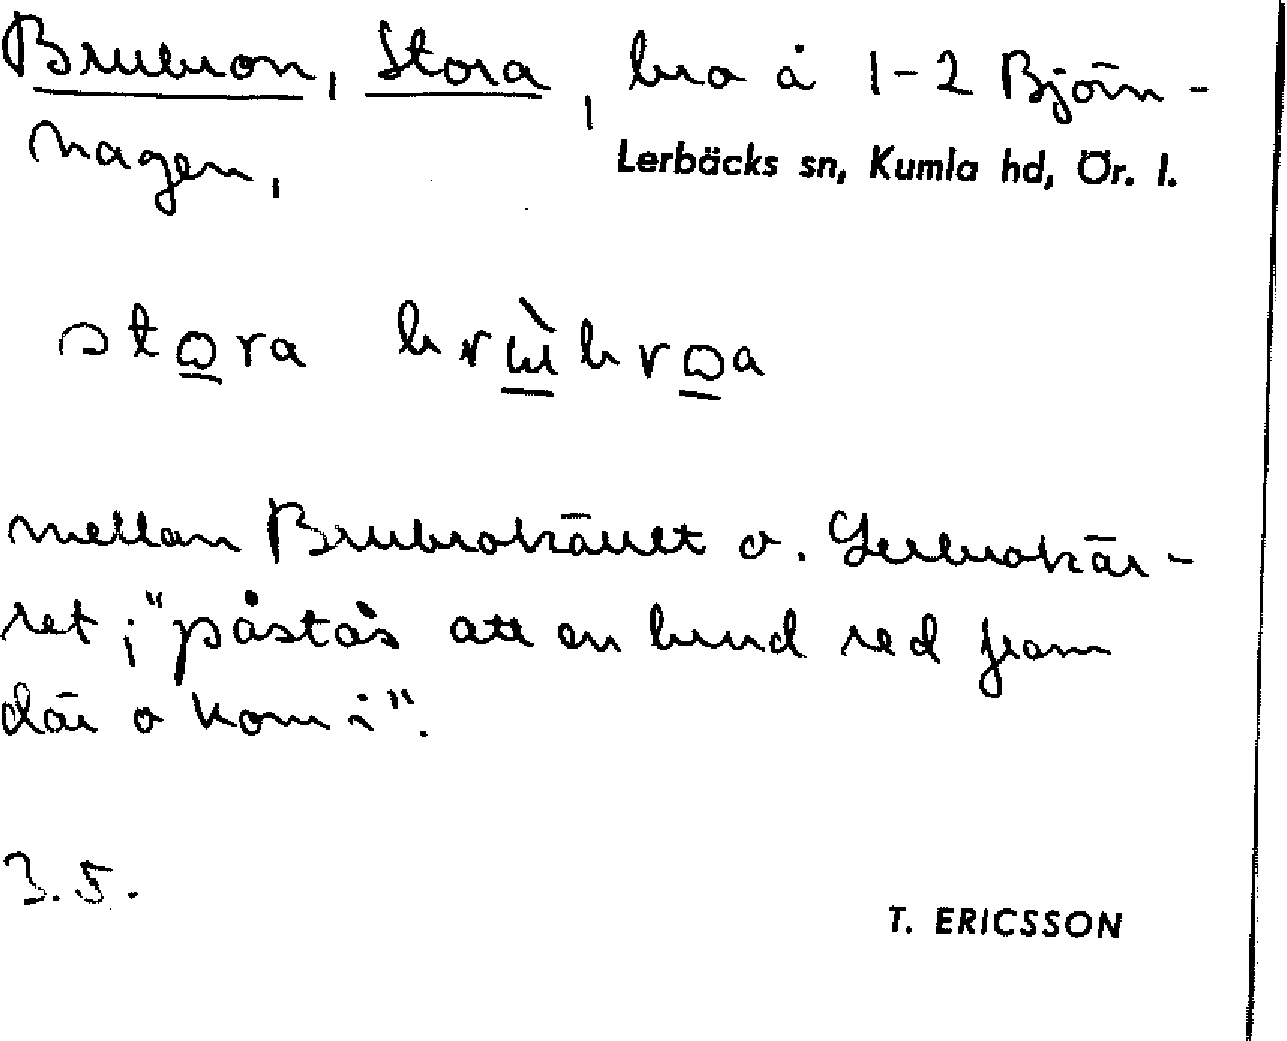 Brubron, Stora, bro å 1-2 Björn-
hagen,
Lerbäcks sn, Kumla hd, Ör. l.
mellan Brubrokärret o. Lerbrokär-
ret; "påstås att en brud red fram
där o kom i".
3.5.
T. ERICSSON